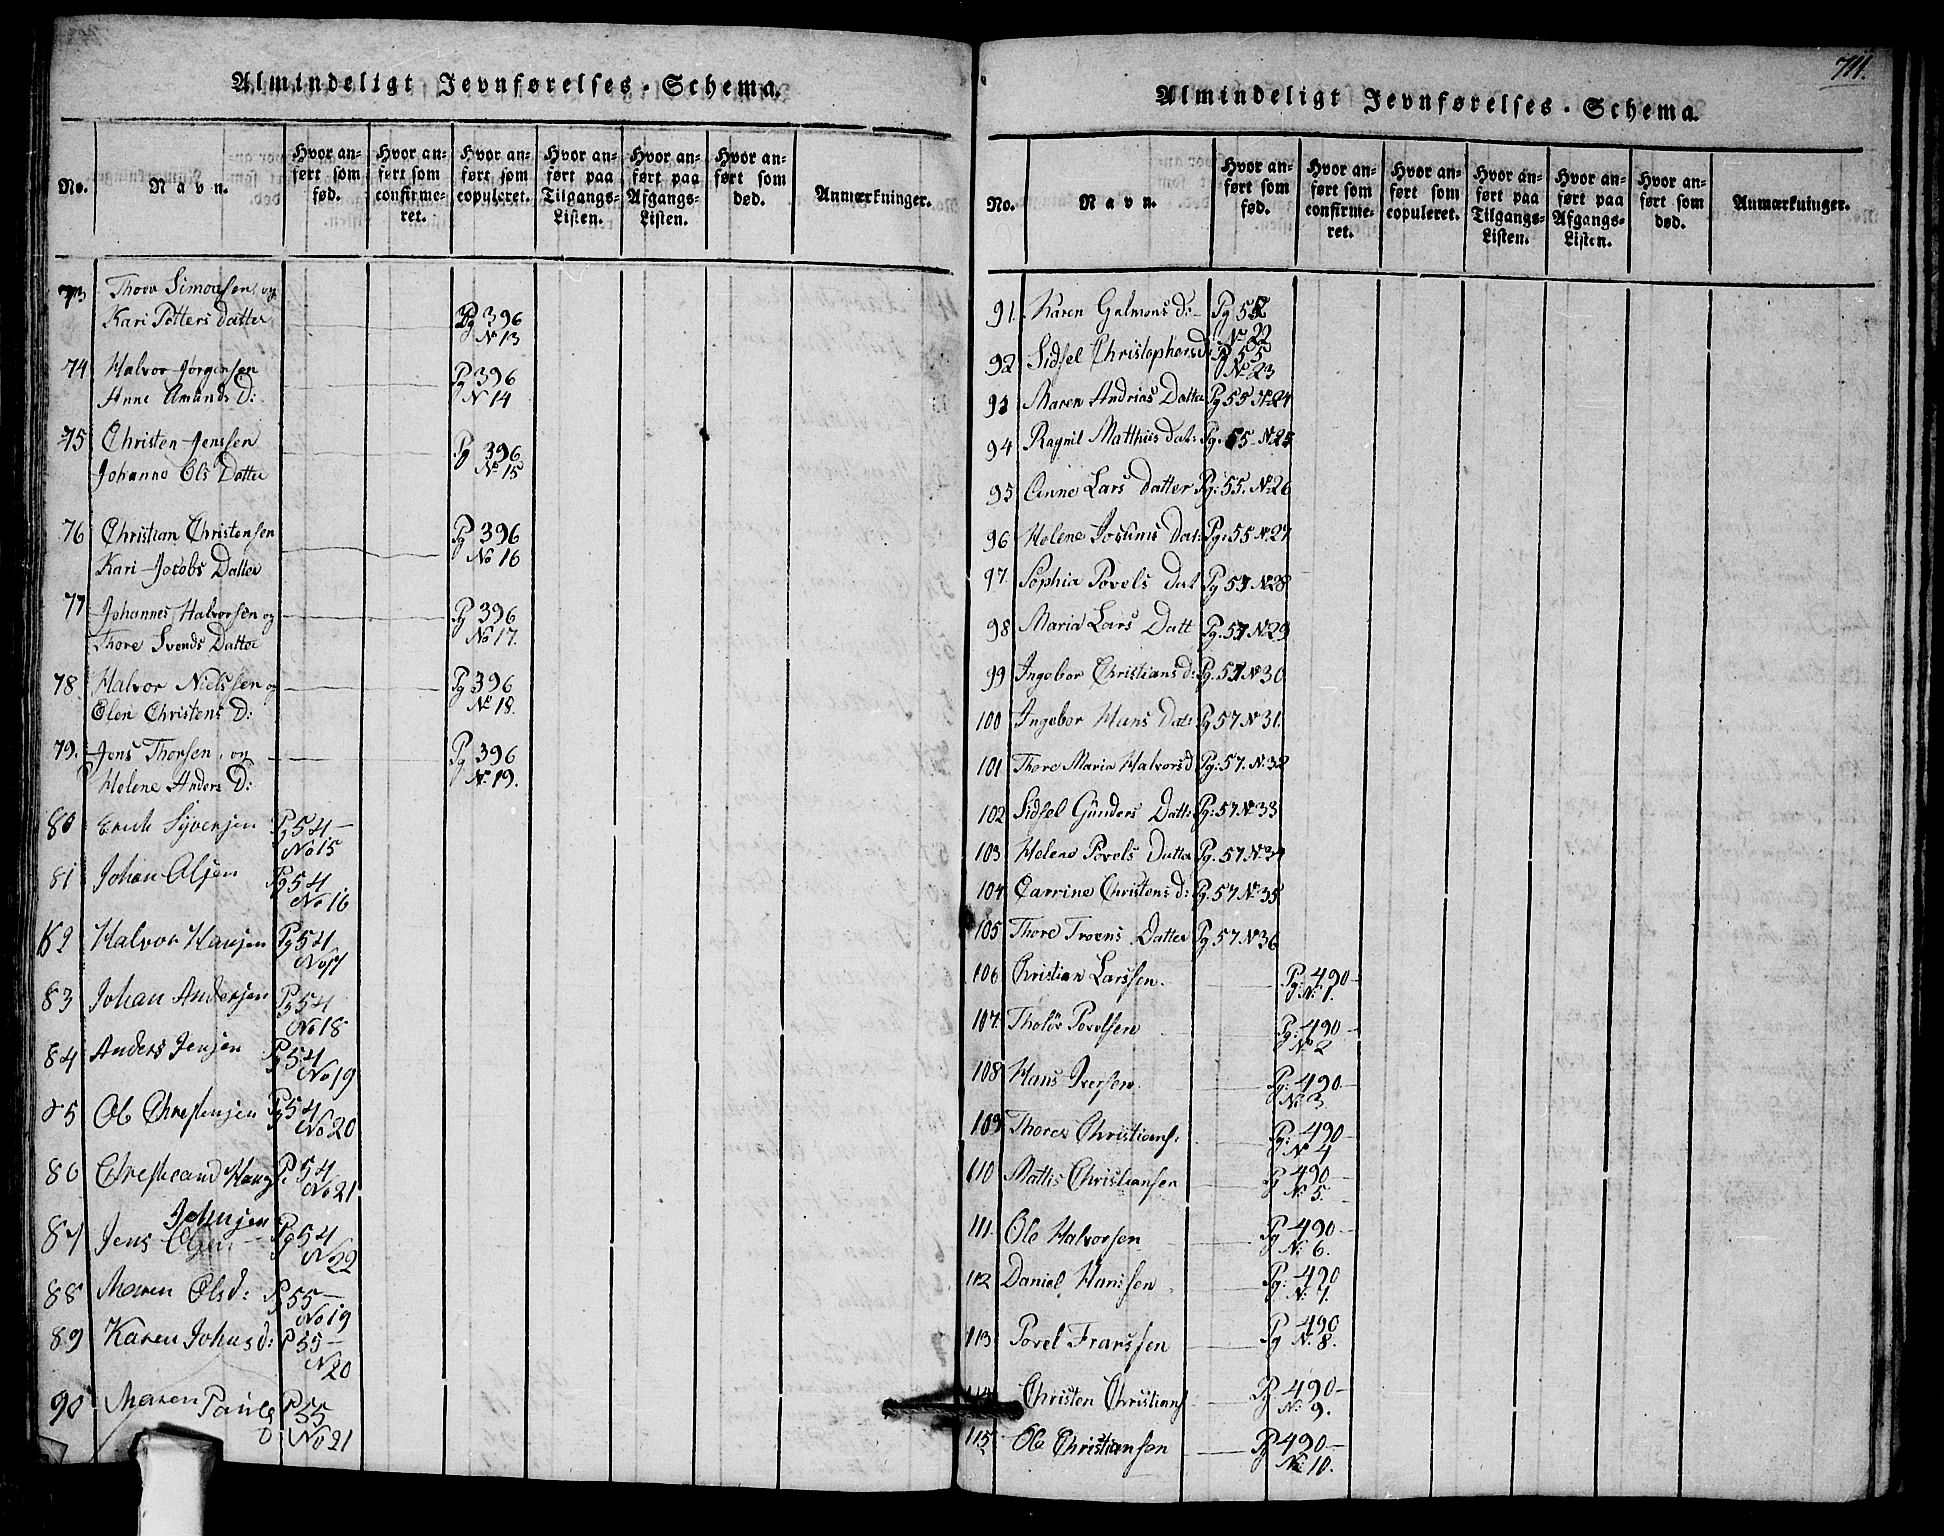 Almindeligt Jevnførelses-Schema.
No.
Navn.
Hvor anført som fød.
Hvor anført som confirmeret.
Hvor anført som copuleret.
Hvor anført paa Tilgangs-Listen.
Hvor anført paa Afgangs-Listen.
Hvor anført som død.
Anmærkninger.
73 Thor Simonsen, og
Kari Petters datter Pg 396
No 13
74 Halvor Jørgensen Pg 396
Anne Amunds D: N 14
75 Christen Jenssen Pg 396
Johanne Ols Datter No 15
76 Christian Christensen Pg 396
Kari Jacobs Datter No 16
77 Johannes Halvorsen og Pg 396
Thore Svends Datter No 17.
78 Halvor Nielssen og Pg 396
Elen Christens D: No 18.
79. Jens Thorsen, og Pg 396
Helene Anders D: No 19.
80 Erich Syversen Pg 54
No 15
81 Johan Olsen Pg 54
No 16
82 Halvor Hansen Pg 54
No 17
83 Johan Andersen Pg 54
No 18
84 Anders Jensen Pg 54
No 19
85 Ole Christensen Pg 54
No 20
86 Hans P 54
No 21
Johnsen
87 Jens Olsen Pg 54
No 22
88 Maren Olsd: P 55
No 19
89 Karen Johnsd: P 55
No 20
90 Maren Pauls P 55
D: No 21
711.
Almindeligt Jevnførelses-Schema.
No.
Navn.
Hvor anført som fød.
Hvor anført som confirmeret.
Hvor anført som copuleret.
Hvor anført paa Tilgangs-Listen.
Hvor anført paa Afgangs-Listen.
Hvor anført som død.
Anmærkninger.
91 Karen Galmons d: Pg 55
No 22
92 Sidsel Christophersd: Pg 55
No 23
93 Maren Andrias Datter Pg 55 No 24
94 Ragnil Matthiis dat: Pg. 55 No 25
95 Anne Lars datter Pg: 55. No 26
96 Helene Dat: Pg: 55 No 27
97. Sophia Povels Dat Pg 57 No 28
98 Maria Lars Datt Pg. 57 No 29
99 Ingebor Christians d: Pg. 57 No 30
100 Ingebor Hans Datt Pg 57 No 31.
101 Thore Maria Halvors d Pg: 57. No: 32
102 Sidsel Günders Datt: Pg: 57 No 33
103 Helene Povels Datter Pg. 57 No. 34
104 Carrine Christens d: Pg. 57 No 35
105 Thore Troens Datter Pg 57 No 36
106 Christian Larssen. Pg: 490
No: 1.
107. Tholöv Povelsen Pg: 490
No 2
108 Hans Iversen. Pg: 490
No: 3
109 Thores Christians: Pg: 490
No 4
110 Mattis Christiansen Pg 490
No 5.
111. Ole Halvorsen Pg 490
No: 6.
112 Daniel Hanssen Pg: 490
No: 7.
113 Povel Franssen Pg 490
No: 8.
114 Christen Christians Pg. 490
No: 9.
115 Ole Christiansen Pg 490
No: 10.